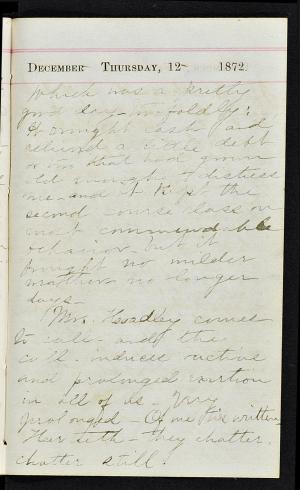 December Thursday, 12 1872.
Which was a pretty
good day - twofoldly:
It brought cash and
a little debt
or two that had grown
old enough distress
me - and it kept the
second course class in
most commendable
behavior - but it
brought no milder
no longer
days -
Mrs. Hoadley comes
to call - and the
call - induces active
and prolonged exertion
in all of us - Very
prolonged - written
Her teth - they chatter,
chatter still!